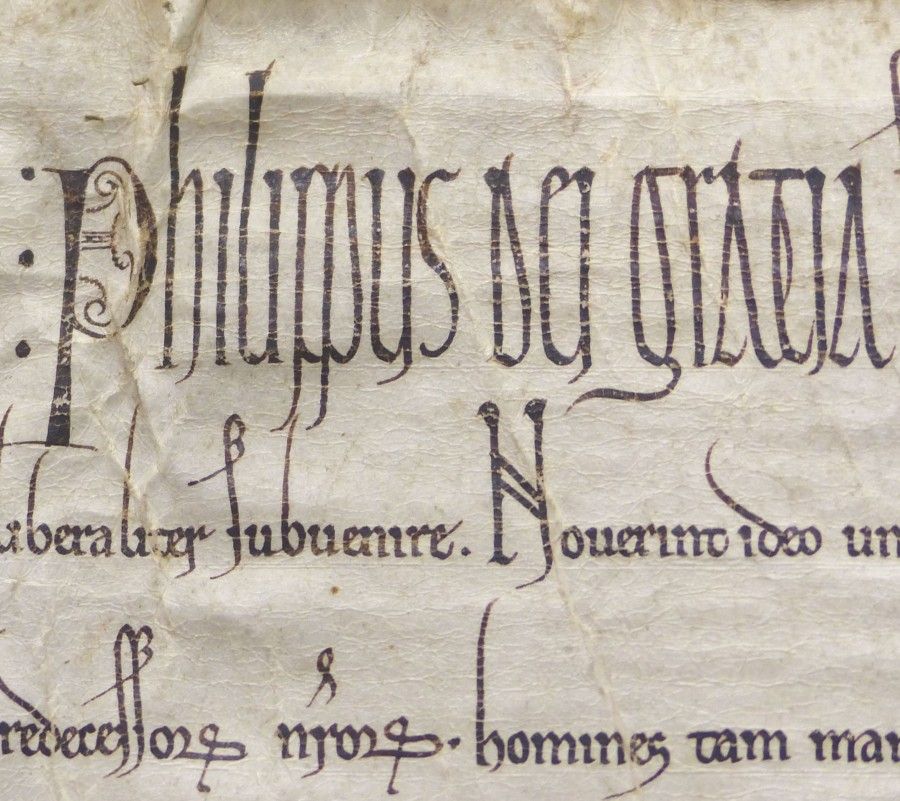 : Philippus dei gratia
liberaliter subuenire. Nouerint ideo un
redecessorꝝ nrorꝝ. homines tam mar